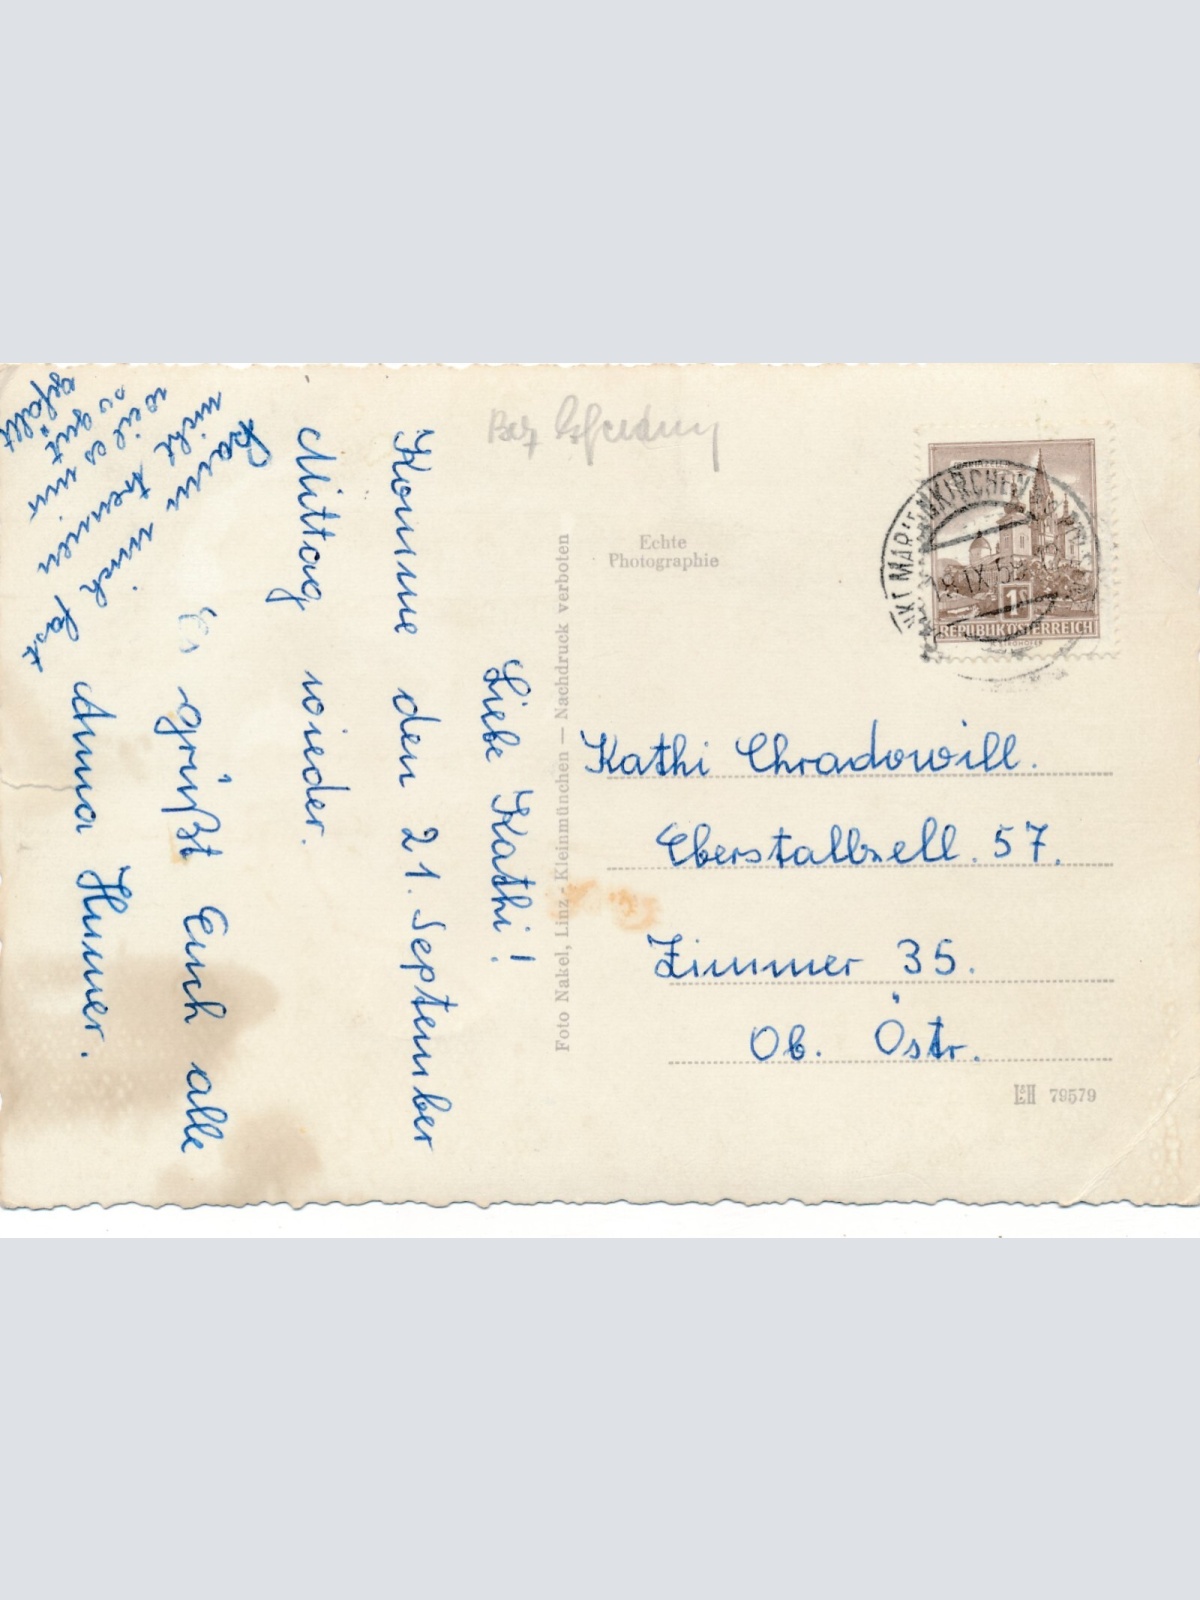 Liebe Kathi!
Komme den 21. September
Mittag wieder.
Es grüßt Euch alle
Anna Humer.
Kann mich fast
nicht trennen
weil es mir
so gut
gefällt
Foto Nakel, Linz-Kleinmünchen — Nachdruck verboten
Echte
Photographie
MARIENKIRCHEN
18.IX.58
1S
REPUBLIK ÖSTERREICH
Kathi Chradowill.
Eberstallzell. 57.
Zimmer 35.
Ob. Östr.
79579